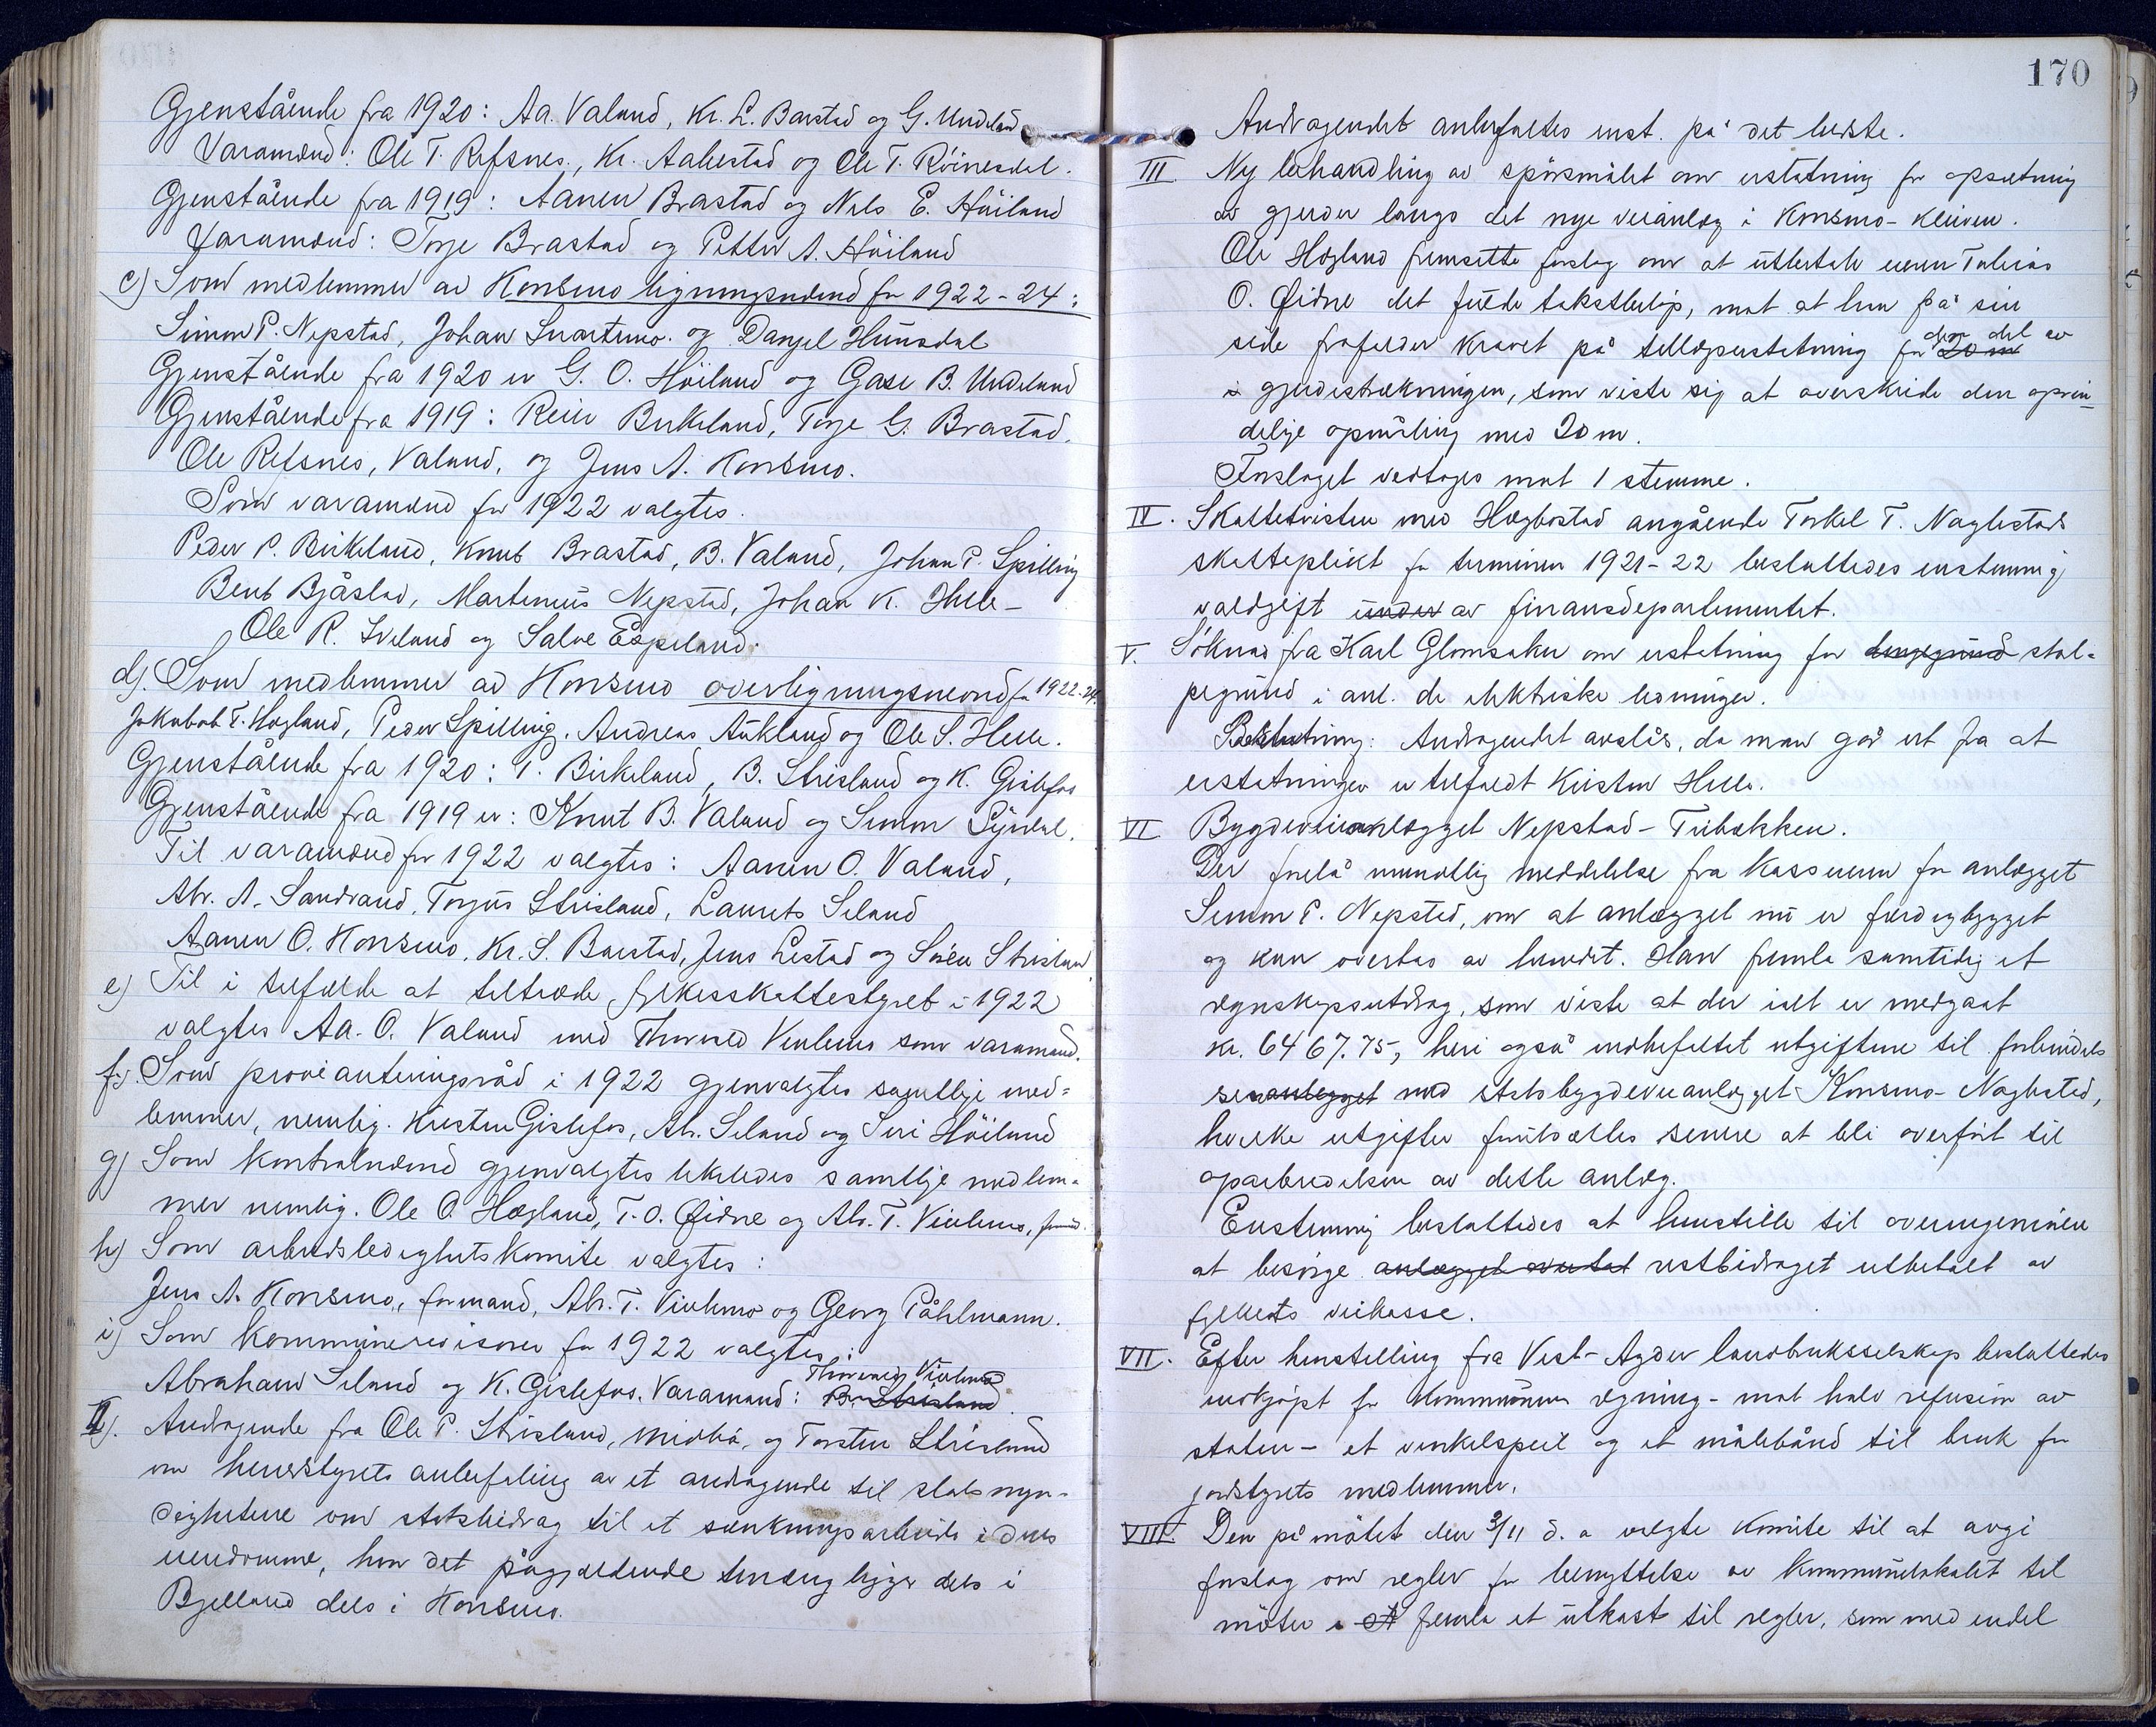 Gjenstående fra 1920: Aa. Valand, Kr. L. Barstad og G. Undeland
Varamænd: Ole T. Refsnes, Kr. Aakestad og Ole T. Röinesdal.
Gjenstående fra 1919: Aanen Brastad og Nils E. Höiland
Varamænd: Torje Brastad og Petter A. Höiland
c) Som medlemmer av Konsmo ligningsnevnd for 1922-24:
Simon P. Nepstad, Johan Svartemo. og Danjel Hunsdal
Gjenstående fra 1920 er G. O. Höiland og Gase B. Undeland
Gjenstående fra 1919: Reier Birkeland, Torje G. Brastad,
Ole Refsnes, Valand, og Jens A. Konsmo.
Som varamænd for 1922 valgtes.
Peder P. Birkeland, Knut Brastad, B. Valand, Johan P. Spilling
Bent Bjåstad, Martenius Nepstad, Johan K. Helle -
Ole R. Iveland og Salve Espeland.
d). Som medlemmer av Konsmo overligningsnevnd for 1922-24.
Jakob T. Hægland, Peder Spilling, Andreas Aukland og Ole S. Helle.
Gjenstående fra 1920: P. Birkeland, B. Strisland og K. Gislefos
Gjenstående fra 1919 er: Knut B. Valand og Simon Syrdal.
Til varamænd for 1922 valgtes: Aanen O. Valand,
Abr. A. Sandvand, Torjus Strisland, Laurits Seland
Aanen O. Konsmo, Kr. S. Barstad, Jens Lestad og Sören Strisland
e) Til i tilfælde at tiltræde fylkesskattestyret i 1922
valgtes Aa. O. Valand med Thorvald Vivlemo som varamand.
f). Som provianteringsråd i 1922 gjenvalgtes samtlige med=
lemmer, nemlig. Kristen Gislefos, Ab. Seland og Siri Höiland
g) Som kontrolnævnd gjenvalgtes likeledes samtlige medlem=
mer nemlig. Ole O. Hægland, T. O. Øidne og Ab. T. Vivlemo, formd.
h) Som arbeidsledighetskomite valgtes:
Jens A. Konsmo, formand, Ab. T. Vivlemo og Georg Påhlmann.
i) Som kommunerevisorer for 1922 valgtes:
Thorvald Vivlemo
Abraham Seland og K. Gislefos. Varamand: B. Strisland.
II). Andragende fra Ole P. Strisland, midbö, og Torsten Strisland
om herredstyrets anbefaling av et andragende til statsmyn-
dighetene om statsbidrag til et sænkningsarbeide i deres
eiendomme, hvor det pågjældende terræng ligger dels i
Bjelland dels i Konsmo.
170
Andragendet anbefaltes enst. på det bedste.
III Ny behandling av spörsmålet om erstatning for opsætning
av gjerder langs det nye veianlæg i Konsmo-kleiven.
Ole Hægland fremsatte forslag om at utbetale Tobias
O. Øidne det fulde takstbelöp, mot at han på sin
side frafalder kravet på tillægserstatning for 20 m den del av
i gjerdestrækningen, som viste sig at overskride den oprin-
delige opmåling med 20 m.
Forslaget vedtages mot 1 stemme.
IV. Skattetvisten med Hægbostad angående Torkel T. Naglestads
skatteplikt for terminen 1921-22 besluttedes enstemmig
voldgift under av finansdepartementet.
V. Söknad fra Karl Glomsaker om erstatning for stol-
pegrund i anl. de elektriske ledninger.
Beslutning: Andragendet avslås, da man går ut fra at
erstatningen er tilfaldt Kristen Helle.
VI Bygdeveianlægget Nepstad - Tribækken.
Der forelå mundtlig meddelelse fra kasserern for anlægget
Simon P. Nepstad, om at anlægget nu er færdigbygget
og kan overtas av herredet. Han fremla samtidig et
regnskapsutdrag, som viste at der ialt er medgaat
kr. 6467.75, heri også indbefattet utgiftene til forbindels
sesanlegget med statsbygdeveianlægget Konsmo-Naglestad,
hvilke utgifter forutsættes senere at bli overfört til
oparbeidelsen av dette anlæg.
Enstemmig besluttedes at henstille til overingeniören
at besörge anlægget overtat restbidraget utbetalt av
fylkets veikasse.
VII. Efter henstilling fra Vest-Agder landbruksselskap besluttedes
indkjöpt for kommunens regning - mot halv refusion av
staten - et vinkelspeil og et målebånd til bruk for
jordstyrets medlemmer.
VIII Den på mötet den 3/11 d. a valgte komite til at avgi
forslag om regler for benyttelse av kommunelokalet til
möter fremla et utkast til regler, som med endel